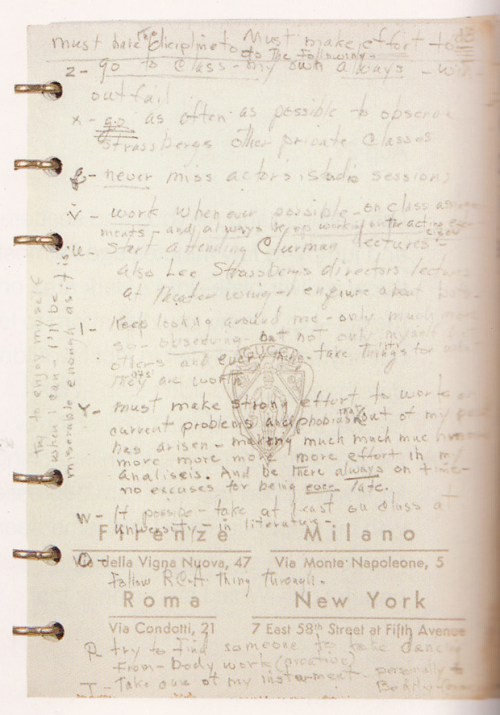 must have the discipline to Must make effort to
do the following -
z - go to class - my own always - with
out fail
x - go as often as possible to observe
Strassbergs other private classes
g - never miss actors studio sessions
v - work whenever possible - on class assign
ments - and always keep working on the acting exer
cises
u - start attending Clurman lectures -
also Lee Strassbergs directors lectures
at theater wing - enquire about both
l - Keep looking around me - only much more
so - observing - but not only myself but
others and everything - take things for what
they are worth
y - must make strong effort to work on
current problems and phobias that out of my past
has arisen - making much much much
more more more more more effort in my
analisis. And be there always on time -
no excuses for being ever late.
w - if possible - take at least one class at
university - in literature -
Firenze Milano
Via della Vigna Nuova, 47 Via Monte Napoleone, 5
o - follow RCA thing through.
Roma New York
Via Condotti, 21 7 East 58th Street at Fifth Avenue
p - try to find someone to take dancing
from - body work (creative)
t - take care of my instrument - personally &
bodily
try to enjoy myself
when I can - I'll be
miserable enough as it is.